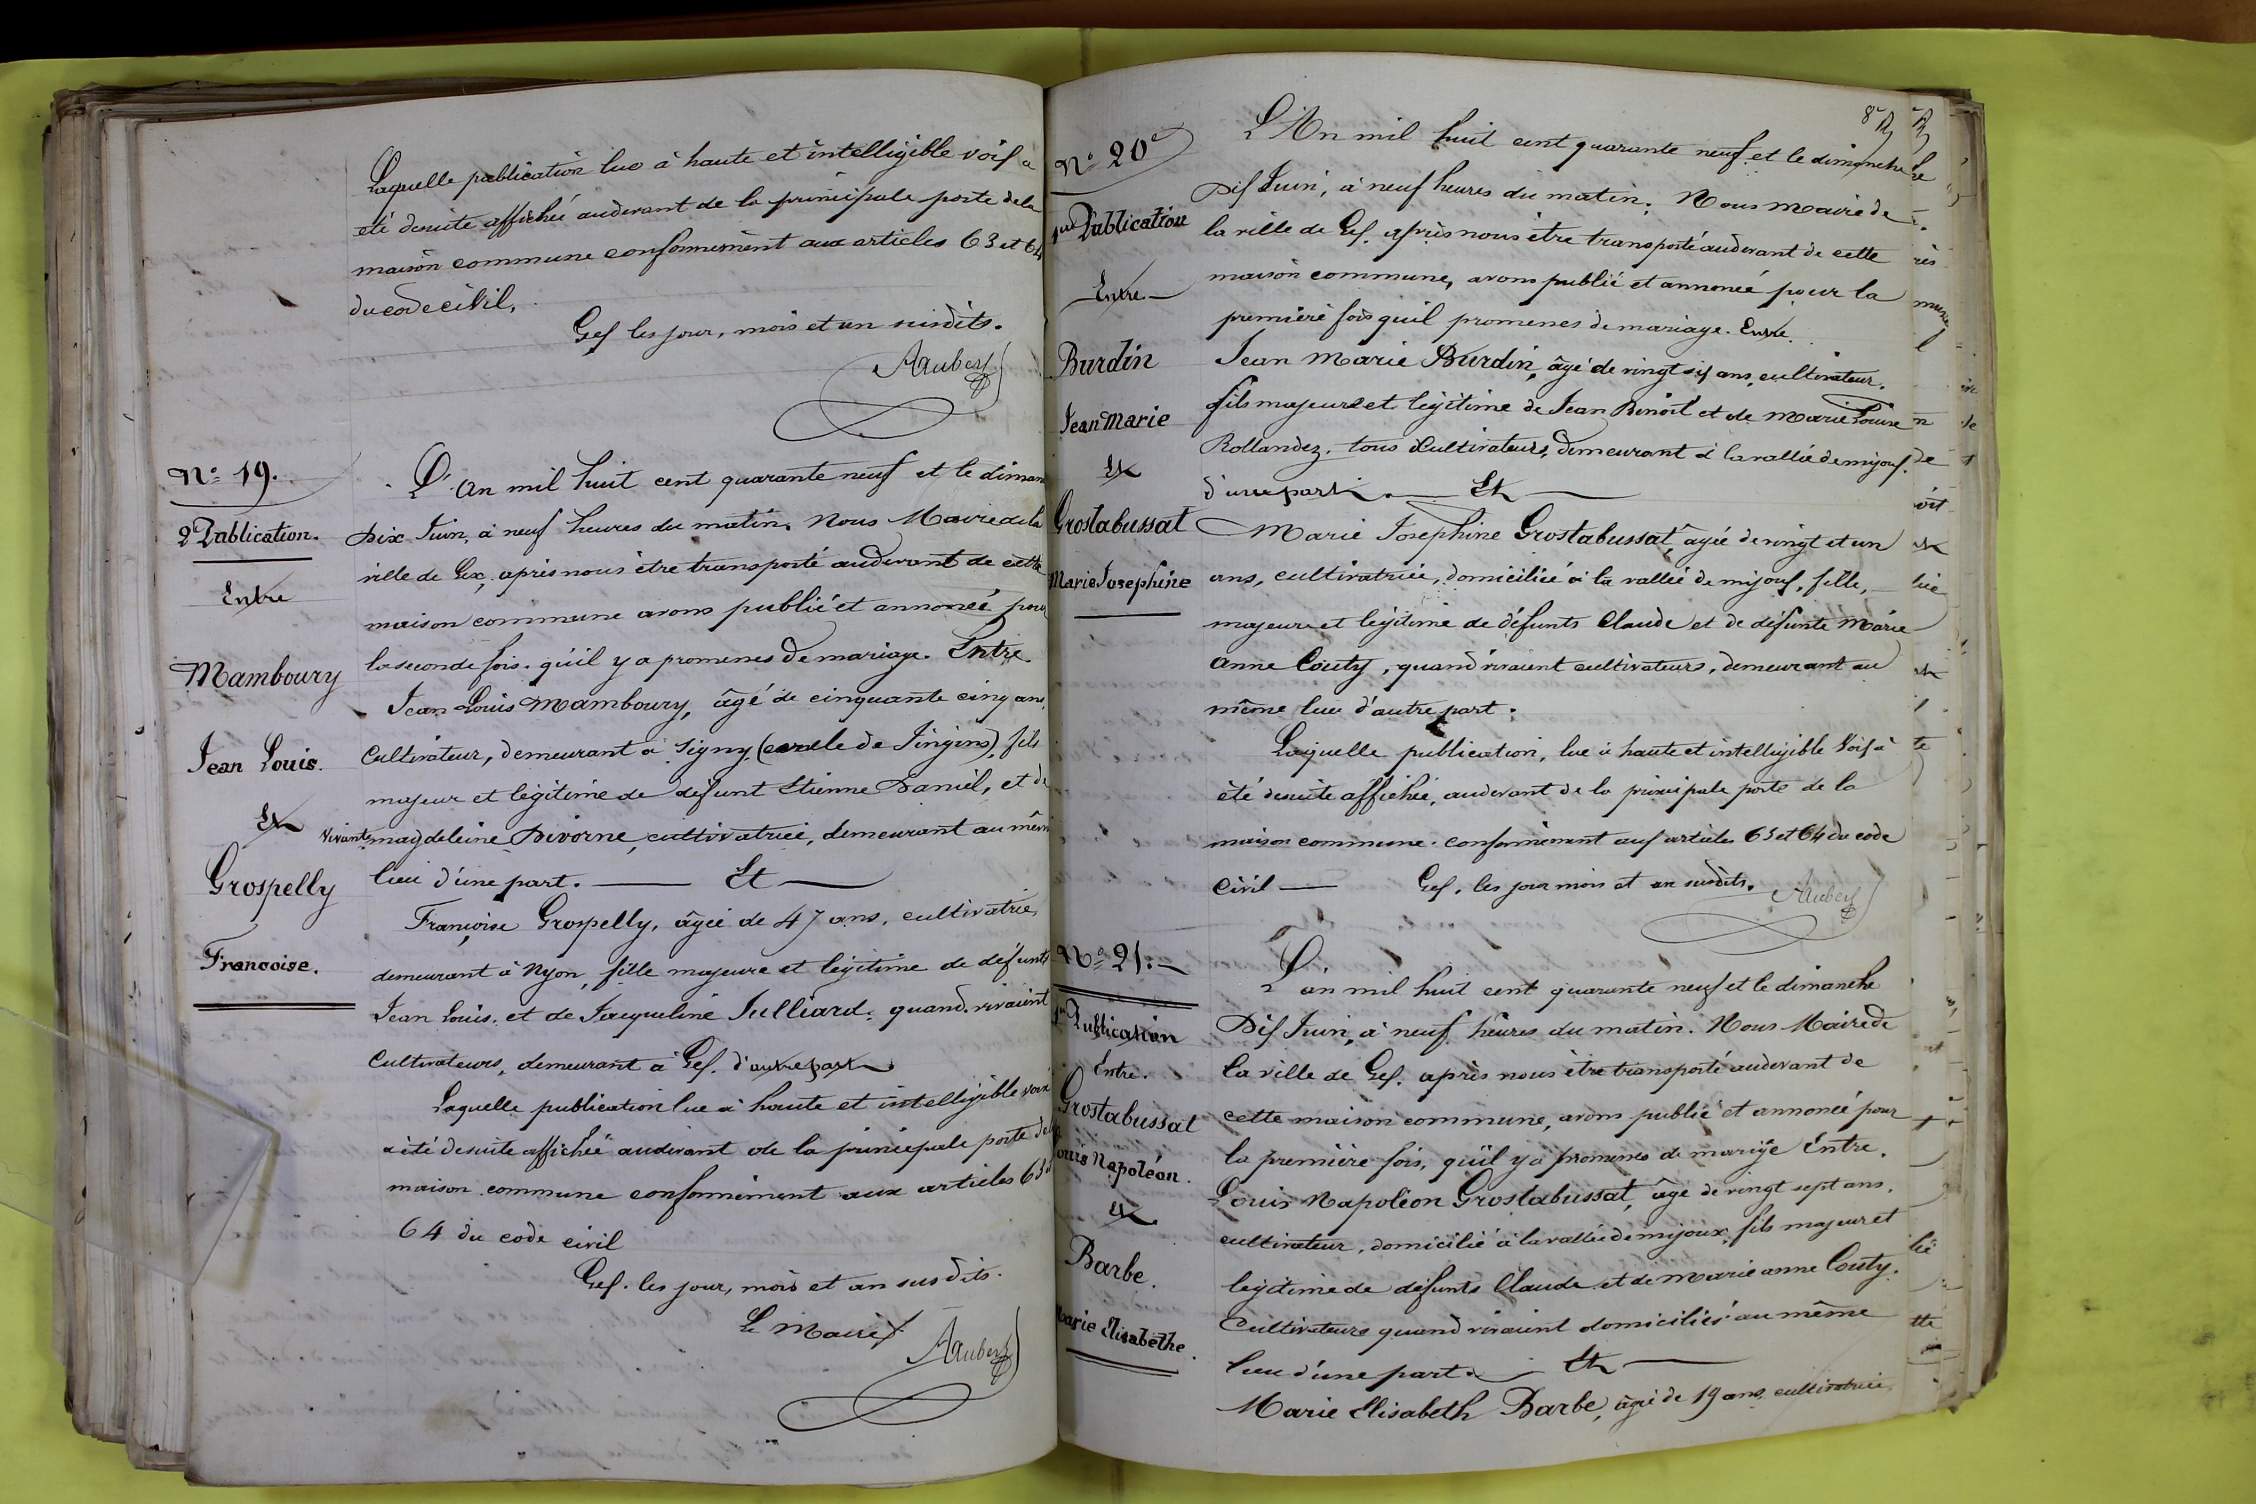 Laquelle publication lue à haute et intelligible voix a
été desuite affichée audevant de la principale porte de la
maison commune conformement aux articles 63 et 64
du code civil,
Gex les jour, mois et an susdits.
N° 19.
2e Publication.
Entre
Mamboury
Jean Louis.
Et
Grospelly
Francoise.
L'An mil huit cent quarante neuf et le diman
Dix Juin, à neuf heures du matin. Nous Maire de la
ville de Gex, après nous être transporté audevant de cette
maison commune avons publié et annoncé pour
la seconde fois. qu'il y a promenes de mariage. Entre
Jean Louis Mamboury, âgé de cinquante cinq ans,
Cultivateur, demeurant à Signy, (cercle de Gingins), fils
majeur et légitime de défunt Etienne Daniel, et de
vivante magdeleine Divorne, cultivatrice, demeurant au mêm
lieu d'une part. — Et —
Françoise Grospelly, âgée de 47 ans, cultivatrice,
demeurant à Nyon, fille majeure et légitime de défunts
Jean Louis. et de Jacqueline Julliard. quand vivaient
Cultivateurs, demeurant à Gex. d'autre part
Laquelle publication lue à haute et intelligible voix
a été desuite affichée audevant de la principale porte de la
maison commune conformément aux articles 63 et
64 du code civil
Gex. les jour, mois et an susdits.
Le Maire
N° 20e
1ere Publication
Entre
Burdin
Jean Marie
Et
Grostabussat
Marie Josephine
L'An mil huit cent quarante neuf et le dimanche
Dix Juin, à neuf heures du matin. Nous maire de
la ville de Gex, après nous être transporté audevant de cette
maison commune, avons publié et annoncé pour la
première fois quil promenes de mariage. Entre
Jean Marie Burdin, âgé de vingt six ans, cultivateur.
fils majeur et légitime de Jean Benoît et de Marie Louise
Rollandez. tous Cultivateurs, demeurant à la vallée de mijoux.
d'une part. — Et —
Marie Josephine Grostabussat, âgée de vingt et un
ans, cultivatrice, domiciliée à la vallée de mijoux, fille,
majeure et légitime de défunts Claude et de défunte Marie
Anne Couty, quand vivaient cultivateurs, demeurant au
même lieu d'autre part.
Laquelle publication, lue à haute et intelligible Voix à
été desuite affichée, audevant de la principale porte de la
maison commune. conformément aux articles 63 et 64 du code
Civil — Gex. les jour mois et an susdits.
N° 21. —
1ere Publication
Entre.
Grostabussat
Louis Napoléon.
Et
Barbe.
Marie Elisabethe.
L'an mil huit cent quarante neuf et le dimanche
Dix Juin, à neuf heures du matin. Nous Maire de
la ville de Gex. après nous être transporté audevant de
cette maison commune, avons publié et annoncé pour
la première fois, qu'il y a promenes de mariage Entre.
Louis Napoléon Grostabussat, âgé de vingt sept ans,
cultivateur, domicilié à la vallée de mijoux, fils majeur et
légitime de défunts Claude et de Marie anne Couty.
Cultivateurs quand vivaient domiciliés au même
lieu d'une part — Et —
Marie Elisabeth Barbe, âgée de 19 ans, cultivatrice,